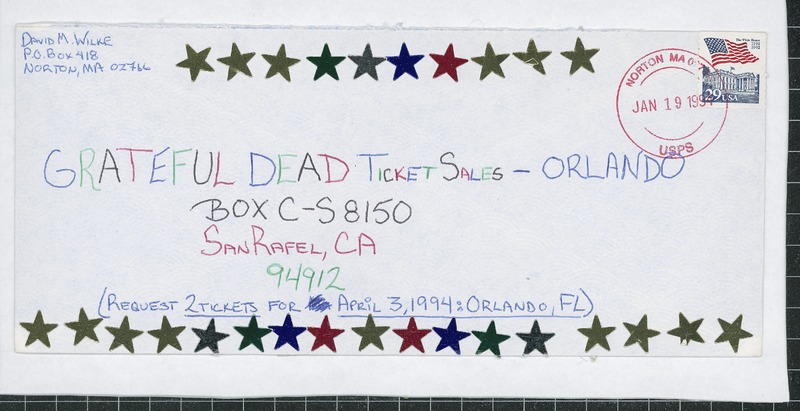 David M. Wilke
P.O. Box 418
Norton, MA 02766
NORTON MA
JAN 19 1994
USPS
The White House
29 USA
GRATEFUL DEAD TICKET SALES - ORLANDO
BOX C-S 8150
SAN RAFEL, CA
94912
(REQUEST 2 TICKETS FOR APRIL 3, 1994: ORLANDO, FL)